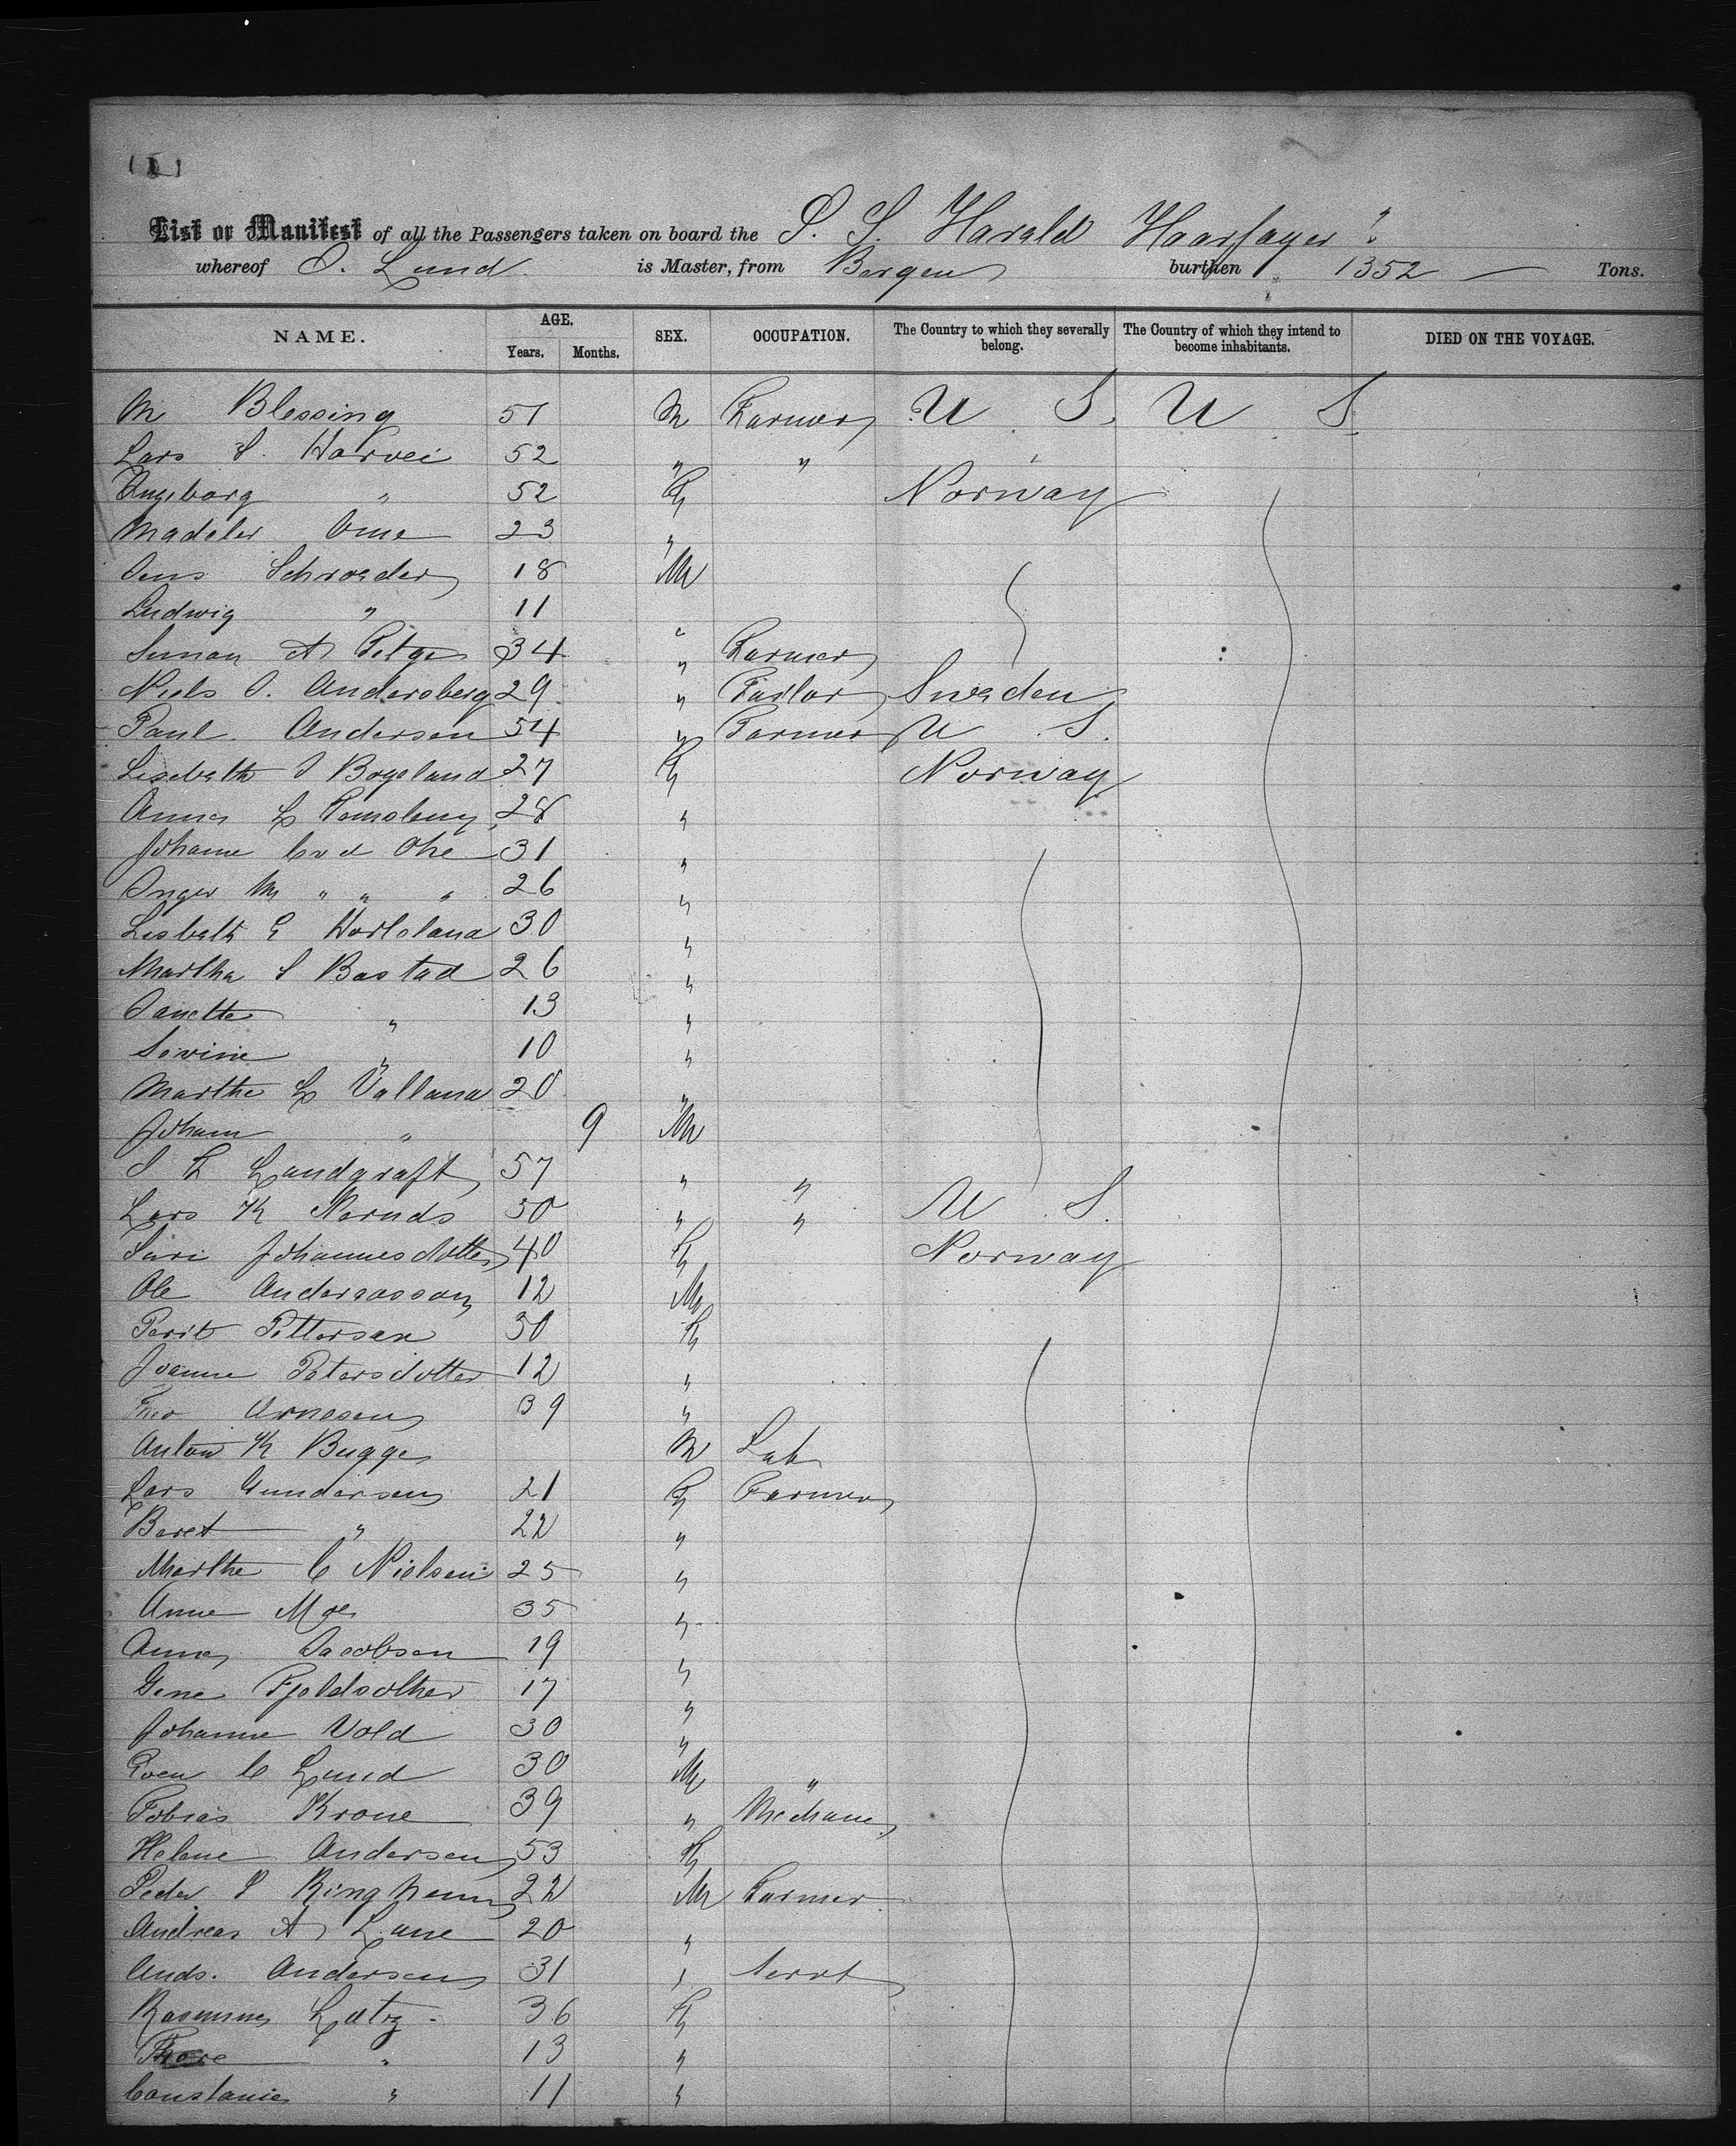 (1)
List or Manifest of all the Passengers taken on board the S. S. Harald Haarfager
whereof O. Lund is Master, from Bergen burthen 1352 Tons.
NAME. AGE. SEX. OCCUPATION. The Country to which they severally belong. The Country of which they intend to become inhabitants. DIED ON THE VOYAGE.
Years. Months.
M Blessing 51 M Farmer U S. U S.
Lars S. Harvei 52 " "
Ingeborg " 52 F Norway
23 "
Jens Schroeder 18 M
Ludwig " 11
Simon A 34 " Farmer
Niels J. Andersberg 29 " Tailor Sweden
Paul Andersen 54 " Farmer U S.
Lisebeth J Bogeland 27 F Norway
Anna L 28 "
Johanne 31 "
Inger M " " " 26 "
Lisbeth E 30 "
Martha S Bastad 26 "
Janette " 13 "
Sovine " 10 "
Marthe L Valland 20 "
Johan " 9 M
S L Landgraft 57 " "
Lars K 50 " " U S.
Sari Johannesdotter 40 F Norway
Ole Anderssson 12 M
Berit Pettersen 30 F
Joanne Petersdotter 12 "
Arnesen 39 "
Anton K Bugge M Lab
Lars Gundersen 21 F Farmer
Beret " 22 "
Marthe C Nielsen 25 "
Anne Moe 35 "
Anna Jacobsen 19 "
Gine 17 "
Johanne Vold 30 "
Even C Lund 30 M "
Tobias Krone 39 " Mechanic
Helene Andersen 53 F
Peder S Ringheim 22 M Farmer
Andreas A Lane 20 "
Ands. Andersen 31 " Servt
Rasmine Lutz 36 F
Thore " 13 "
Constanie " 11 "